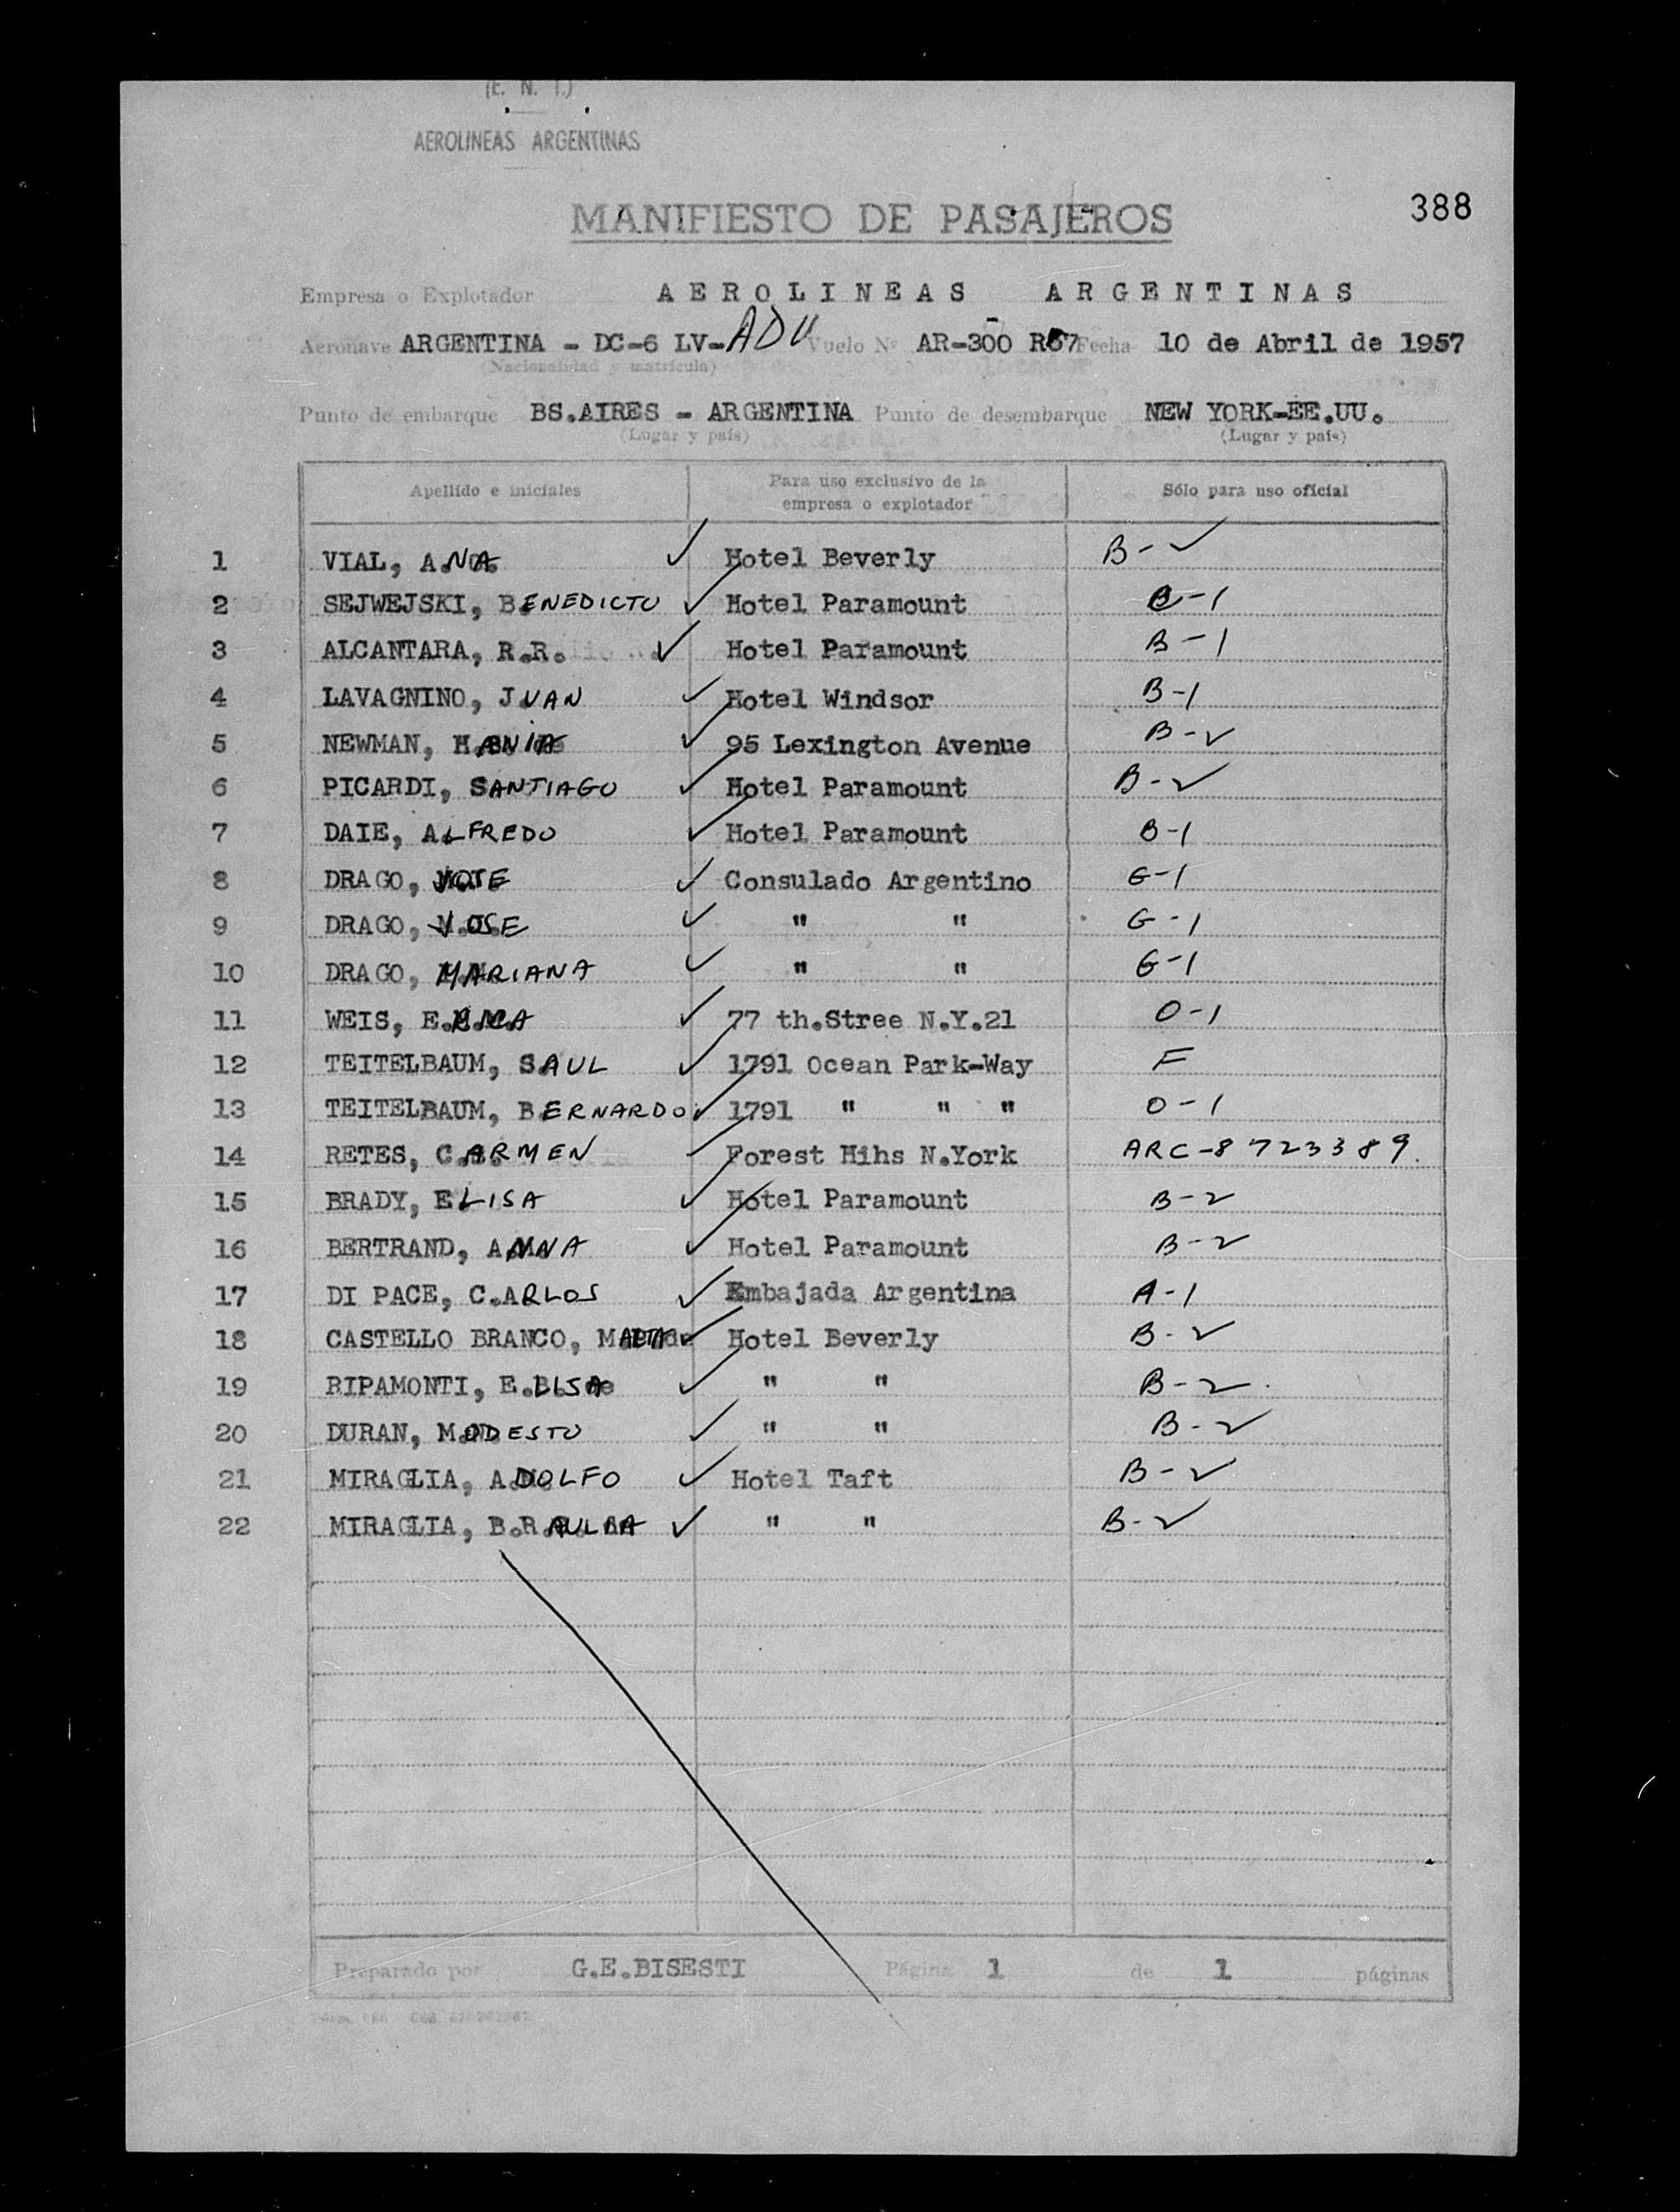 (E. N. T.)
AEROLINEAS ARGENTINAS
388
MANIFIESTO DE PASAJEROS
Empresa o Explotador AEROLINEAS ARGENTINAS
Aeronave ARGENTINA - DC-6 LV-ADU Vuelo Nº AR-300 R67 Fecha 10 de Abril de 1957
(Nacionalidad y matrícula)
Punto de embarque BS.AIRES - ARGENTINA Punto de desembarque NEW YORK-EE.UU.
(Lugar y país) (Lugar y país)
Apellido e iniciales Para uso exclusivo de la empresa o explotador Sólo para uso oficial
1 VIAL, ANA ✓ Hotel Beverly B-2
2 SEJWEJSKI, BENEDICTO ✓ Hotel Paramount B-1
3 ALCANTARA, R.R. ✓ Hotel Paramount B-1
4 LAVAGNINO, JUAN ✓ Hotel Windsor B-1
5 NEWMAN, HANIA ✓ 95 Lexington Avenue B-2
6 PICARDI, SANTIAGO ✓ Hotel Paramount B-2
7 DAIE, ALFREDO ✓ Hotel Paramount B-1
8 DRAGO, ✓ Consulado Argentino G-1
9 DRAGO, JOSE ✓ " " G-1
10 DRAGO, MARIANA ✓ " " G-1
11 WEIS, E. ✓ 77 th.Stree N.Y.21 O-1
12 TEITELBAUM, SAUL ✓ 1791 Ocean Park-Way F
13 TEITELBAUM, BERNARDO ✓ 1791 " " " O-1
14 RETES, CARMEN ✓ Forest Hihs N.York ARC-8723389.
15 BRADY, ELISA ✓ Hotel Paramount B-2
16 BERTRAND, ANNA ✓ Hotel Paramount B-2
17 DI PACE, C.ARLOS ✓ Embajada Argentina A-1
18 CASTELLO BRANCO, ✓ Hotel Beverly B-2
19 RIPAMONTI, ELISA ✓ " " B-2
20 DURAN, MODESTO ✓ " " B-2
21 MIRAGLIA, ADOLFO ✓ Hotel Taft B-2
22 MIRAGLIA, B.R. ✓ " " B-2
Preparado por G.E.BISESTI Página 1 de 1 páginas